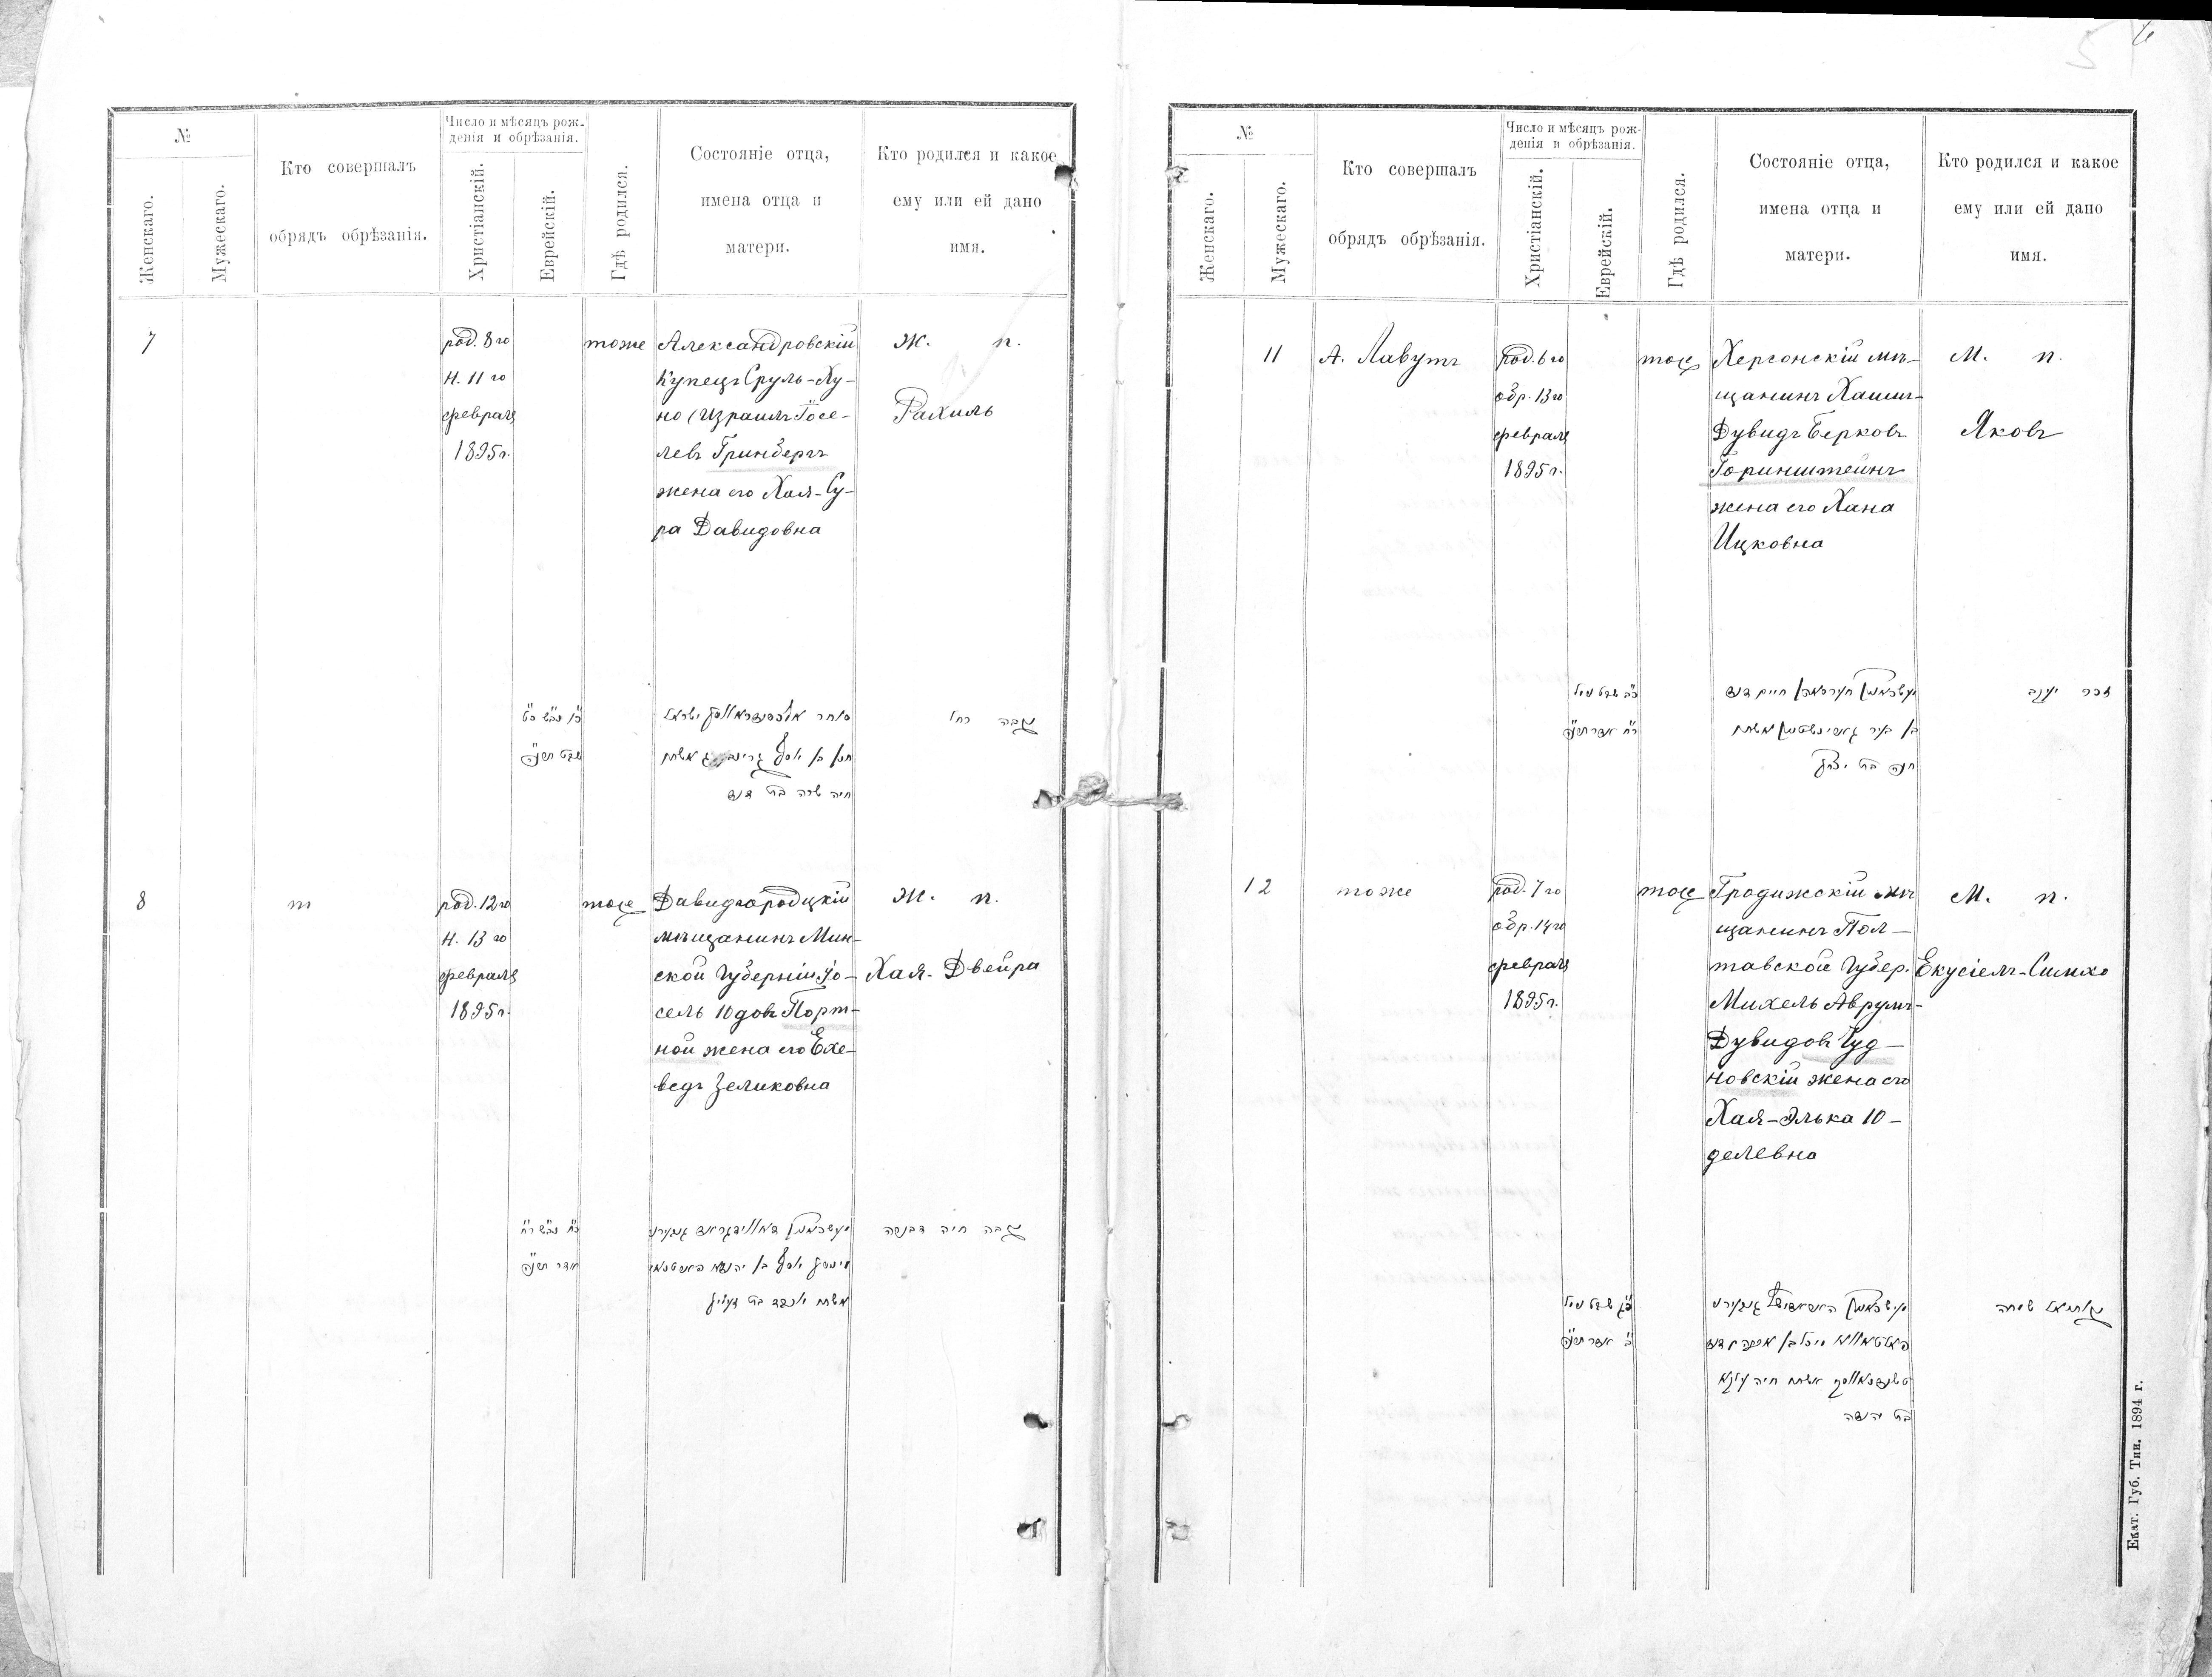 5
6
№
Женскаго.
Мужескаго.
Кто совершалъ
обрядъ обрѣзанія.
Число и мѣсяцъ рож-
денія и обрѣзанія.
Христіанскій.
Еврейскій.
Гдѣ родился.
Состояніе отца,
имена отца и
матери.
Кто родился и какое
ему или ей дано
имя.
7
род. 8го
н. 11го
февраля
1895г.
тоже
Александровскій
купецъ Сруль-Ху-
но (Израиль Іосе-
левъ Гринбергъ
жена его Хая-Су-
ра Давидовна
Ж. п.
Рахиль
שבט
סוחר ישראל
בן יוסף
חיה שרה בת דוד
נקבה רחל
8
т
род. 12го
н. 13го
февраля
1895г.
тоже
Давидгородцкій
мѣщанинъ Мин-
ской губерніи Іо-
сель Юдовъ Порт-
ной жена его Ехе-
ведъ Зеликовна
Ж. п.
Хая-Двейра
אדר
יוסף בן יהודא
אשתו יוכבד בת זעליג
נקבה חיה דבושה
№
Женскаго.
Мужескаго.
Кто совершалъ
обрядъ обрѣзанія.
Число и мѣсяцъ рож-
денія и обрѣзанія.
Христіанскій.
Еврейскій.
Гдѣ родился.
Состояніе отца,
имена отца и
матери.
Кто родился и какое
ему или ей дано
имя.
11
А. Лавутъ
род. 6го
обр. 13го
февраля
1895г.
тоже
Херсонскій мѣ-
щанинъ Хаимъ-
Дувидъ Берковъ
Горинштейнъ
жена его Хана
Ицковна
М. п.
Яковъ
שבט
אדר
חיים דוד
אשתו
חנה בת יצחק
זכר יעקב
12
тоже
род. 7го
обр. 14го
февраля
1895г.
тоже
Градижскій мѣ
щанинъ Пол-
тавской губер.
Михель Аврумъ-
Дувидовъ Чуд-
новскій жена его
Хая-Элька Ю-
делевна
М. п.
Екусіель-Симхо
שבט
אדר
אשתו חיה
בת יהודה
שמחה
Екат. Губ. Тип. 1894 г.